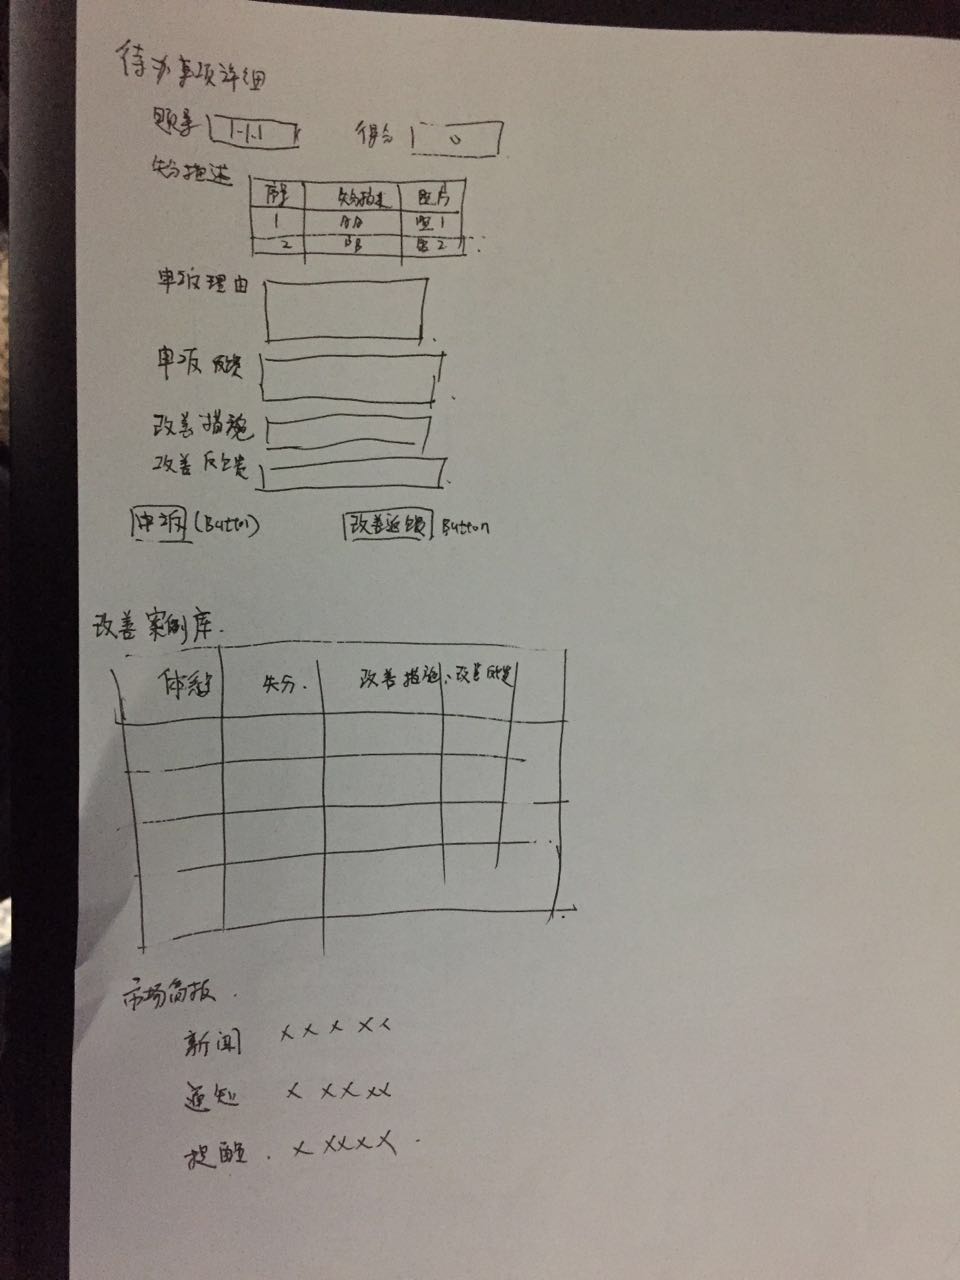 待办事项详细
题号 1-1.1 得分 0
失分描述
序号 失分描述 照片
1 AA 照1
2 BB 照2
申诉理由
申诉反馈
改善措施
改善反馈
申诉 (Button) 改善反馈 Button
改善案例库.
体系 失分. 改善措施、改善反馈
市场简报.
新闻 x x x x x
通知 x x x x x
提醒. x x x x x.